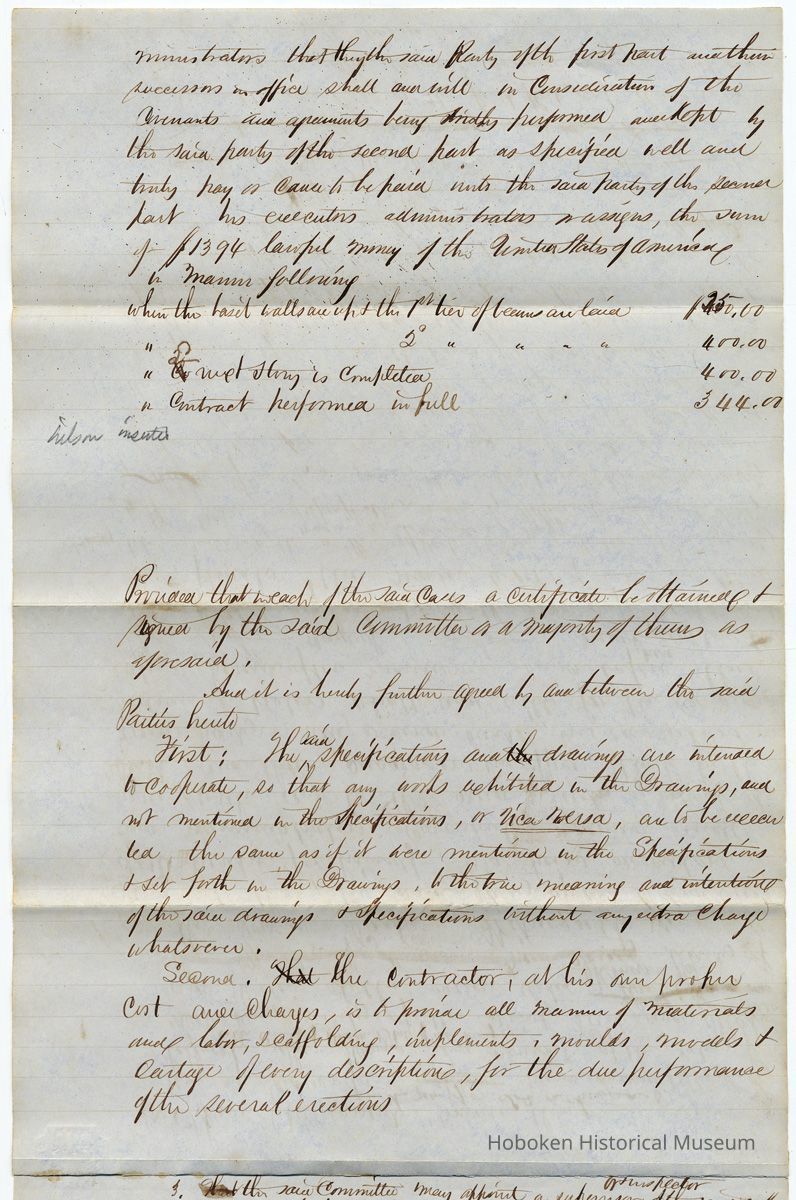 ministrators that they the said Party of the first part and their
successors in office shall and will in Consideration of the
Covenants and agreements being strictly performed and kept by
the said party of the second part as specified well and
truly pay or cause to be paid unto the said Party of the second
part his executors administrators or assigns, the sum
of $1394 lawful money of the United States of America
in Manner following
when the bas't walls are up & the 1st tier of beams are laid $250.00
" 2d " " " " 400.00
" story is completed 400.00
" Contract performed in full 344.00
insert
Provided that in each of the said Cases a certificate be obtained &
signed by the said Committee or a majority of them as
aforesaid.
And it is hereby further agreed by and between the said
Parties hereto
First: The said specifications and the drawings are intended
to cooperate, so that any works exhibited in the Drawings, and
not mentioned in the Specifications, or Vica Versa, are to be execu
ted the same as if it were mentioned in the Specifications
& set forth in the Drawings, to the true meaning and intention
of the said drawings & Specifications without any extra Charge
whatsoever.
Second. That The contractor, at his own proper
Cost and Charges, is to provide all manner of materials
and labor, scaffolding, implements, moulds, models &
Cartage of every description, for the due performance
of the several erections
Hoboken Historical Museum
or inspector
3. That the said Committee may appoint a